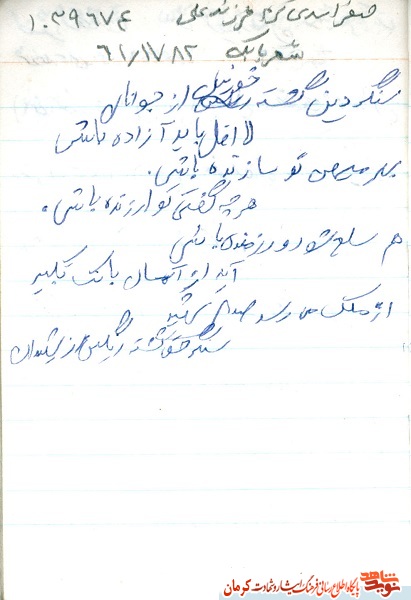 صفر اسدی فرزند علی ۱۰۳۹۶۷۴
شهر بابک ۶۱/۱۱/۸۲
سنگر دین گشته خونین از جوانان
اقل باید آزاده باشی
بهر میهن تو سازنده باشی.
هر چه گفتی تو ارزنده باشی.
هم سلحشور و رزمنده باشی
آید از آسمان بانگ تکبیر
از ملک می رسد
سنگر حق گشته رنگین از شهیدان
شاهد نوید
پایگاه اطلاع رسانی فرهنگ ایثار و شهادت کرمان